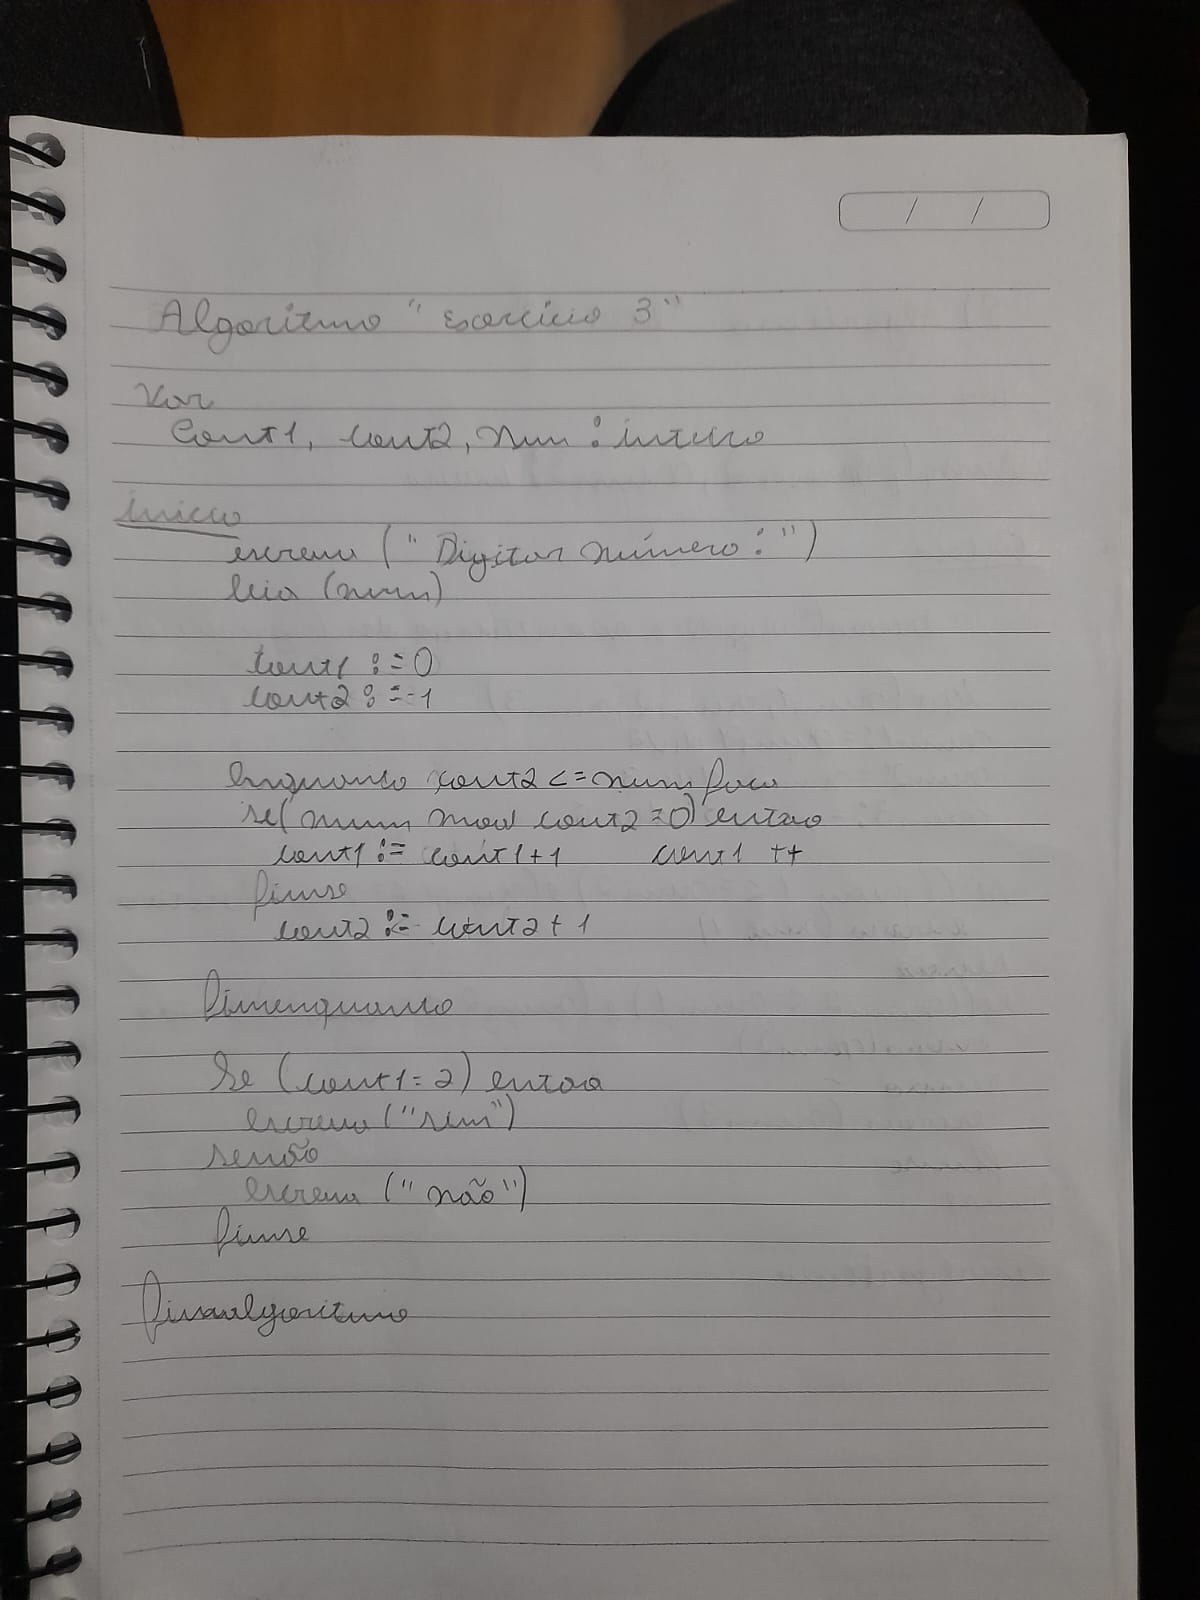 / /
Algoritmo "Exercício 3"
Var
Cont1, cont2, num : inteiro
inicio
escreva ("Digitar número:")
leia (num)
cont1 := 0
cont2 := -1
Enquanto cont2 <= num faca
se( num mod cont2 = 0) entao
cont1 := cont1+1 cont1 ++
fimse
cont2 := cont2 + 1
fimenquanto
Se (cont1 = 2) entao
escreva ("sim")
senão
escreva ("não")
fimse
fimalgoritmo